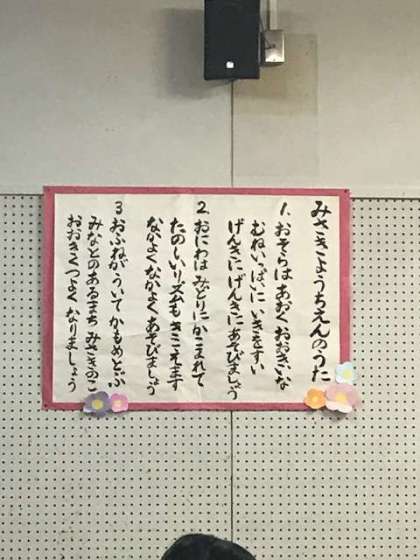 みさきようちえんのうた
1. おそらは あおく おおきいな
むねいっぱいに いきをすい
げんきに げんきに あそびましょう
2. おにわは みどりに かこまれて
たのしいリズムも きこえます
なかよく なかよく あそびましょう
3 おふねが ういて かもめとぶ
みなとのあるまち みさきのこ
おおきくつよく なりましょう